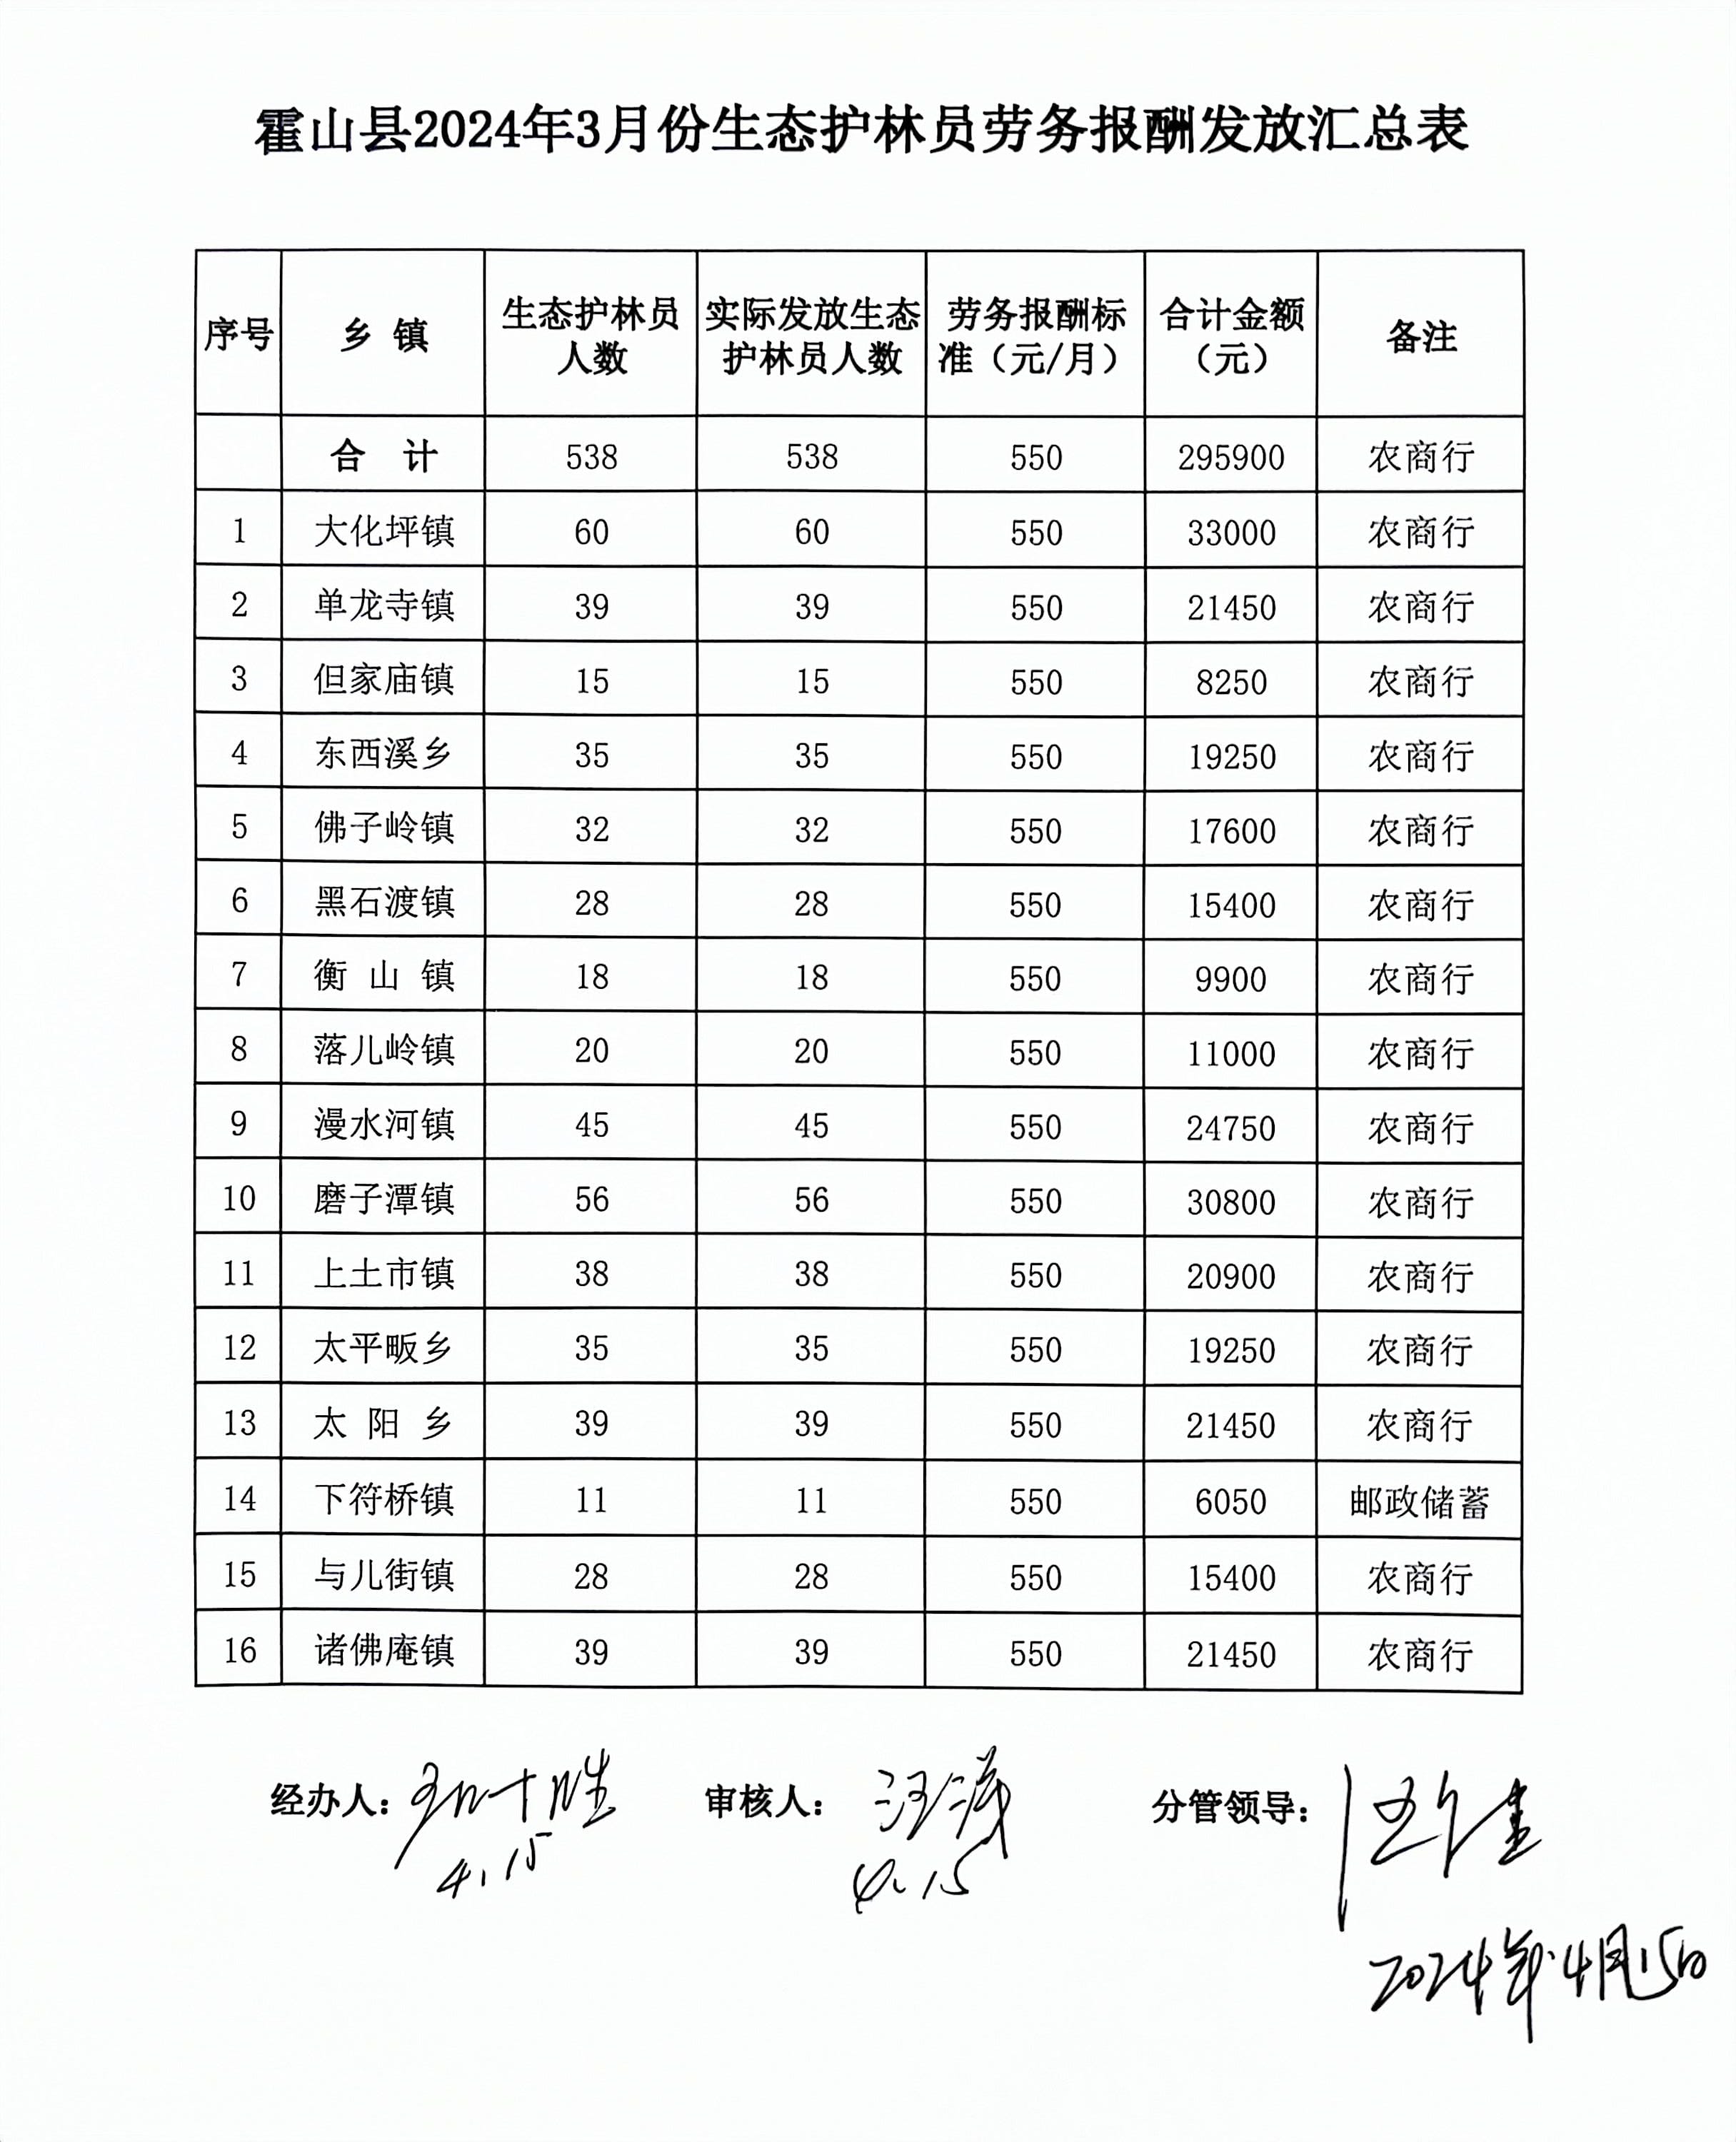 霍山县2024年3月份生态护林员劳务报酬发放汇总表
序号 乡 镇 生态护林员人数 实际发放生态护林员人数 劳务报酬标准（元/月） 合计金额（元） 备注
合 计 538 538 550 295900 农商行
1 大化坪镇 60 60 550 33000 农商行
2 单龙寺镇 39 39 550 21450 农商行
3 但家庙镇 15 15 550 8250 农商行
4 东西溪乡 35 35 550 19250 农商行
5 佛子岭镇 32 32 550 17600 农商行
6 黑石渡镇 28 28 550 15400 农商行
7 衡 山 镇 18 18 550 9900 农商行
8 落儿岭镇 20 20 550 11000 农商行
9 漫水河镇 45 45 550 24750 农商行
10 磨子潭镇 56 56 550 30800 农商行
11 上土市镇 38 38 550 20900 农商行
12 太平畈乡 35 35 550 19250 农商行
13 太 阳 乡 39 39 550 21450 农商行
14 下符桥镇 11 11 550 6050 邮政储蓄
15 与儿街镇 28 28 550 15400 农商行
16 诸佛庵镇 39 39 550 21450 农商行
经办人： 审核人： 分管领导：
4.15 4.15
2024年4月15日